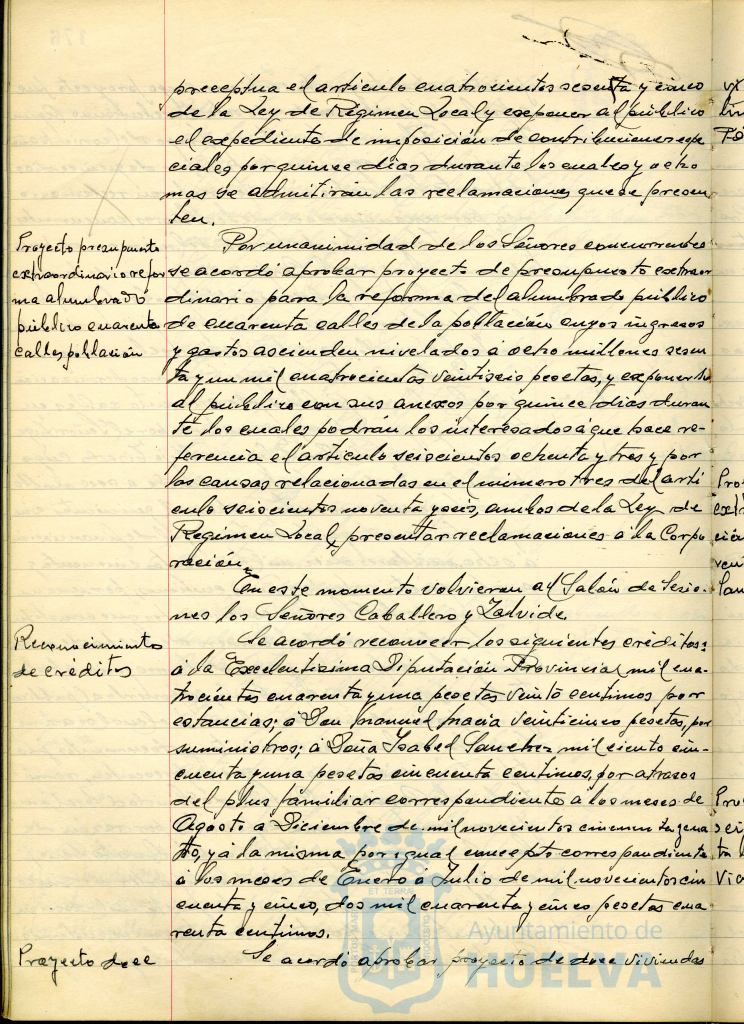 preceptua el articulo cuatrocientos sesenta y cinco
de la Ley de Régimen Local y exponer al público
el expediente de imposición de contribuciones espe
ciales por quince días durante los cuales y ocho
mas se admitirán las reclamaciones que se presen
ten.
Proyecto presupuesto
extraordinario refor
ma alumbrado
público cuarenta
calles población
Por unanimidad de los Señores concurrentes
se acordó aprobar proyecto de presupuesto extraor
dinario para la reforma del alumbrado público
de cuarenta calles de la población cuyos ingresos
y gastos ascienden nivelados a ocho millones sesen
ta y un mil cuatrocientas veintiseis pesetas, y exponerlo
al público con sus anexos por quince días duran
te los cuales podrán los interesados a que hace re-
ferencia el articulo seiscientos ochenta y tres y por
las causas relacionadas en el número tres del arti
culo seiscientos noventa y seis, ambos de la Ley de
Regimen Local, presentar reclamaciones á la Corpo
ración.
En este momento volvieron al Salón de Sesio-
nes los Señores Caballero y Zalvide.
Reconocimiento
de créditos
Se acordó reconocer los siguientes créditos:
á la Excelentísima Diputación Provincial mil cua-
trocientas cuarenta y una pesetas veinte centimos por
estancias; á Don Manuel Macia veinticinco pesetas, por
suministros; á Doña Isabel Sanchez mil ciento cin-
cuenta y una pesetas cincuenta centimos, por atrasos
del plus familiar correspondiente a los meses de
Agosto a Diciembre de mil novecientos cincuenta y cua
tro, y á la misma por igual concepto correspondiente
á los meses de Enero á Julio de mil novecientos cin
cuenta y cinco, dos mil cuarenta y cinco pesetas cua
renta centimos.
Proyecto doce
Se acordó aprobar proyecto de doce viviendas
Ayuntamiento de
HUELVA